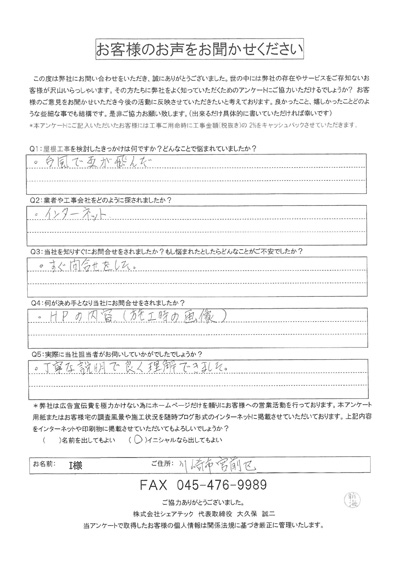 お客様のお声をお聞かせください
この度は弊社にお問い合わせをいただき、誠にありがとうございました。世の中には弊社の存在やサービスをご存知ないお
客様が沢山いらっしゃいます。その方たちに弊社をよく知っていただくためのアンケートにご協力いただけるでしょうか？ お客
様のご意見をお聞かせいただき今後の活動に反映させていただきたいと考えております。良かったこと、嬉しかったことどのよ
うな些細な事でも結構です。是非ご協力お願い致します。(出来るだけ具体的に書いていただければ幸いです)
*本アンケートにご記入いただいたお客様には工事ご用命時に工事金額(税抜き)の2%をキャッシュバックさせていただきます。
Q1：屋根工事を検討したきっかけは何ですか？どんなことで悩まれていましたか？
。台風で瓦が飛んだ
Q2：業者や工事会社をどのように探されましたか？
。インターネット
Q3：当社を知りすぐにお問合せをされましたか？もし悩まれたとしたらどんなことがご不安でしたか？
。すぐ問合せをした。
Q4：何が決め手となり当社にお問合せをされましたか？
。HPの内容(施工時の画像)
Q5：実際に当社担当者がお伺いしていかがでしたでしょうか？
。丁寧な説明で良く理解できました。
＊弊社は広告宣伝費を極力かけない為にホームページだけを頼りにお客様への営業活動を行っております。本アンケート
用紙またはお客様宅の調査風景や施工状況を随時ブログ形式のインターネットに掲載させていただいております。上記内容
をインターネットや印刷物に掲載させていただいてもよろしいでしょうか？
(　)名前を出してもよい　(○)イニシャルなら出してもよい
お名前：　I様　ご住所：　川崎市宮前区
FAX 045-476-9989
ご協力ありがとうございました。
株式会社シェアテック 代表取締役 大久保 誠二
当アンケートで取得したお客様の個人情報は関係法規に基づき厳正に管理いたします。